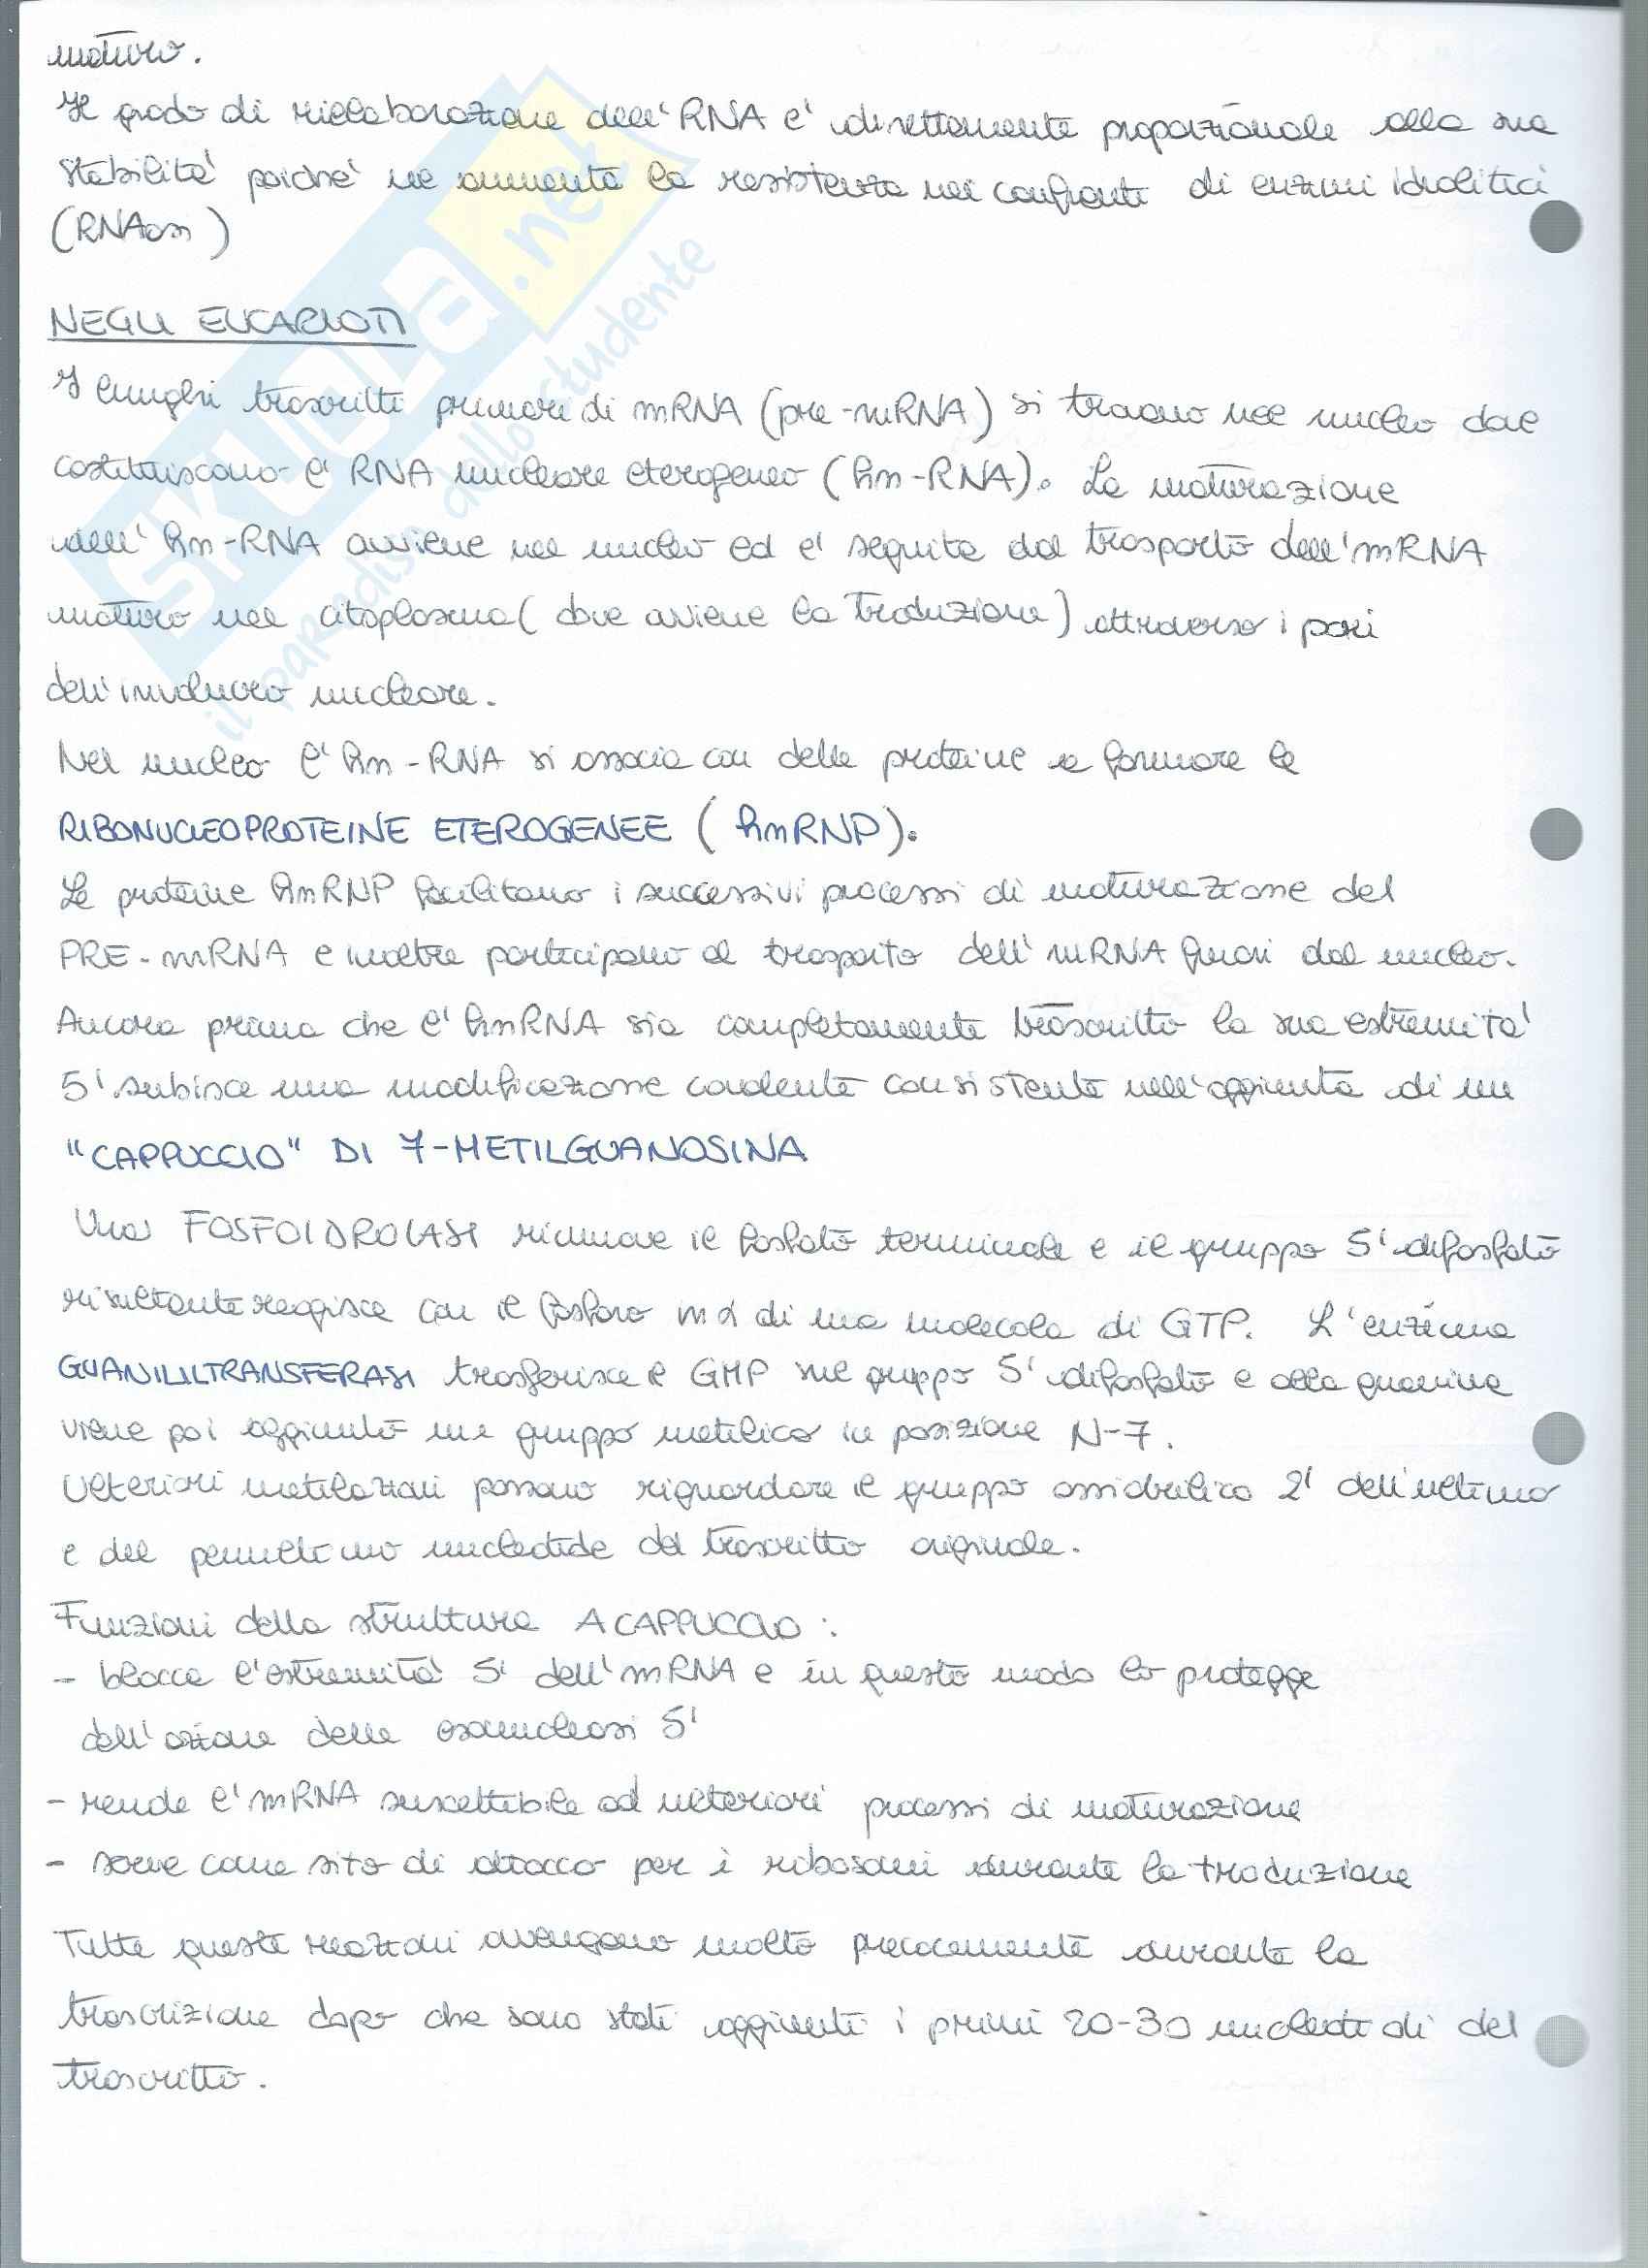 maturo.
Il grado di rielaborazione dell'RNA e' direttamente proporzionale alla sua
stabilita' poiche' ne aumenta la resistenza nei confronti di enzimi idrolitici
(RNAasi)
NEGLI EUCARIOTI
I lunghi trascritti primari di mRNA (pre-mRNA) si trovano nel nucleo dove
costituiscono l'RNA nucleare eterogeneo (hn-RNA). La maturazione
dell'hn-RNA avviene nel nucleo ed e' seguita dal trasporto dell'mRNA
maturo nel citoplasma (dove avviene la traduzione) attraverso i pori
dell'involucro nucleare.
Nel nucleo l'hn-RNA si associa con delle proteine a formare le
RIBONUCLEOPROTEINE ETEROGENEE (hnRNP).
Le proteine hnRNP facilitano i successivi processi di maturazione del
PRE-mRNA e inoltre partecipano al trasporto dell'mRNA fuori dal nucleo.
Ancora prima che l'hnRNA sia completamente trascritto la sua estremita'
5' subisce una modificazione covalente consistente nell'aggiunta di un
"CAPPUCCIO" DI 7-METILGUANOSINA
Una FOSFOIDROLASI rimuove il fosfato terminale e il gruppo 5' difosfato
risultante reagisce con il fosforo in α di una molecola di GTP. L'enzima
GUANILILTRANSFERASI trasferisce il GMP sul gruppo 5' difosfato e alla guanina
viene poi aggiunto un gruppo metilico in posizione N-7.
Ulteriori metilazioni possono riguardare il gruppo ossidrilico 2' dell'ultimo
e del penultimo nucleotide del trascritto originale.
Funzioni della struttura A CAPPUCCIO:
- blocca l'estremita' 5' dell'mRNA e in questo modo lo protegge
dall'azione delle esonucleasi 5'
- rende l'mRNA suscettibile ad ulteriori processi di maturazione
- serve come sito di attacco per i ribosomi durante la traduzione
Tutte queste reazioni avvengono molto precocemente durante la
trascrizione dopo che sono stati aggiunti i primi 20-30 nucleotidi del
trascritto.
SKUOLA.net
il paradiso dello studente